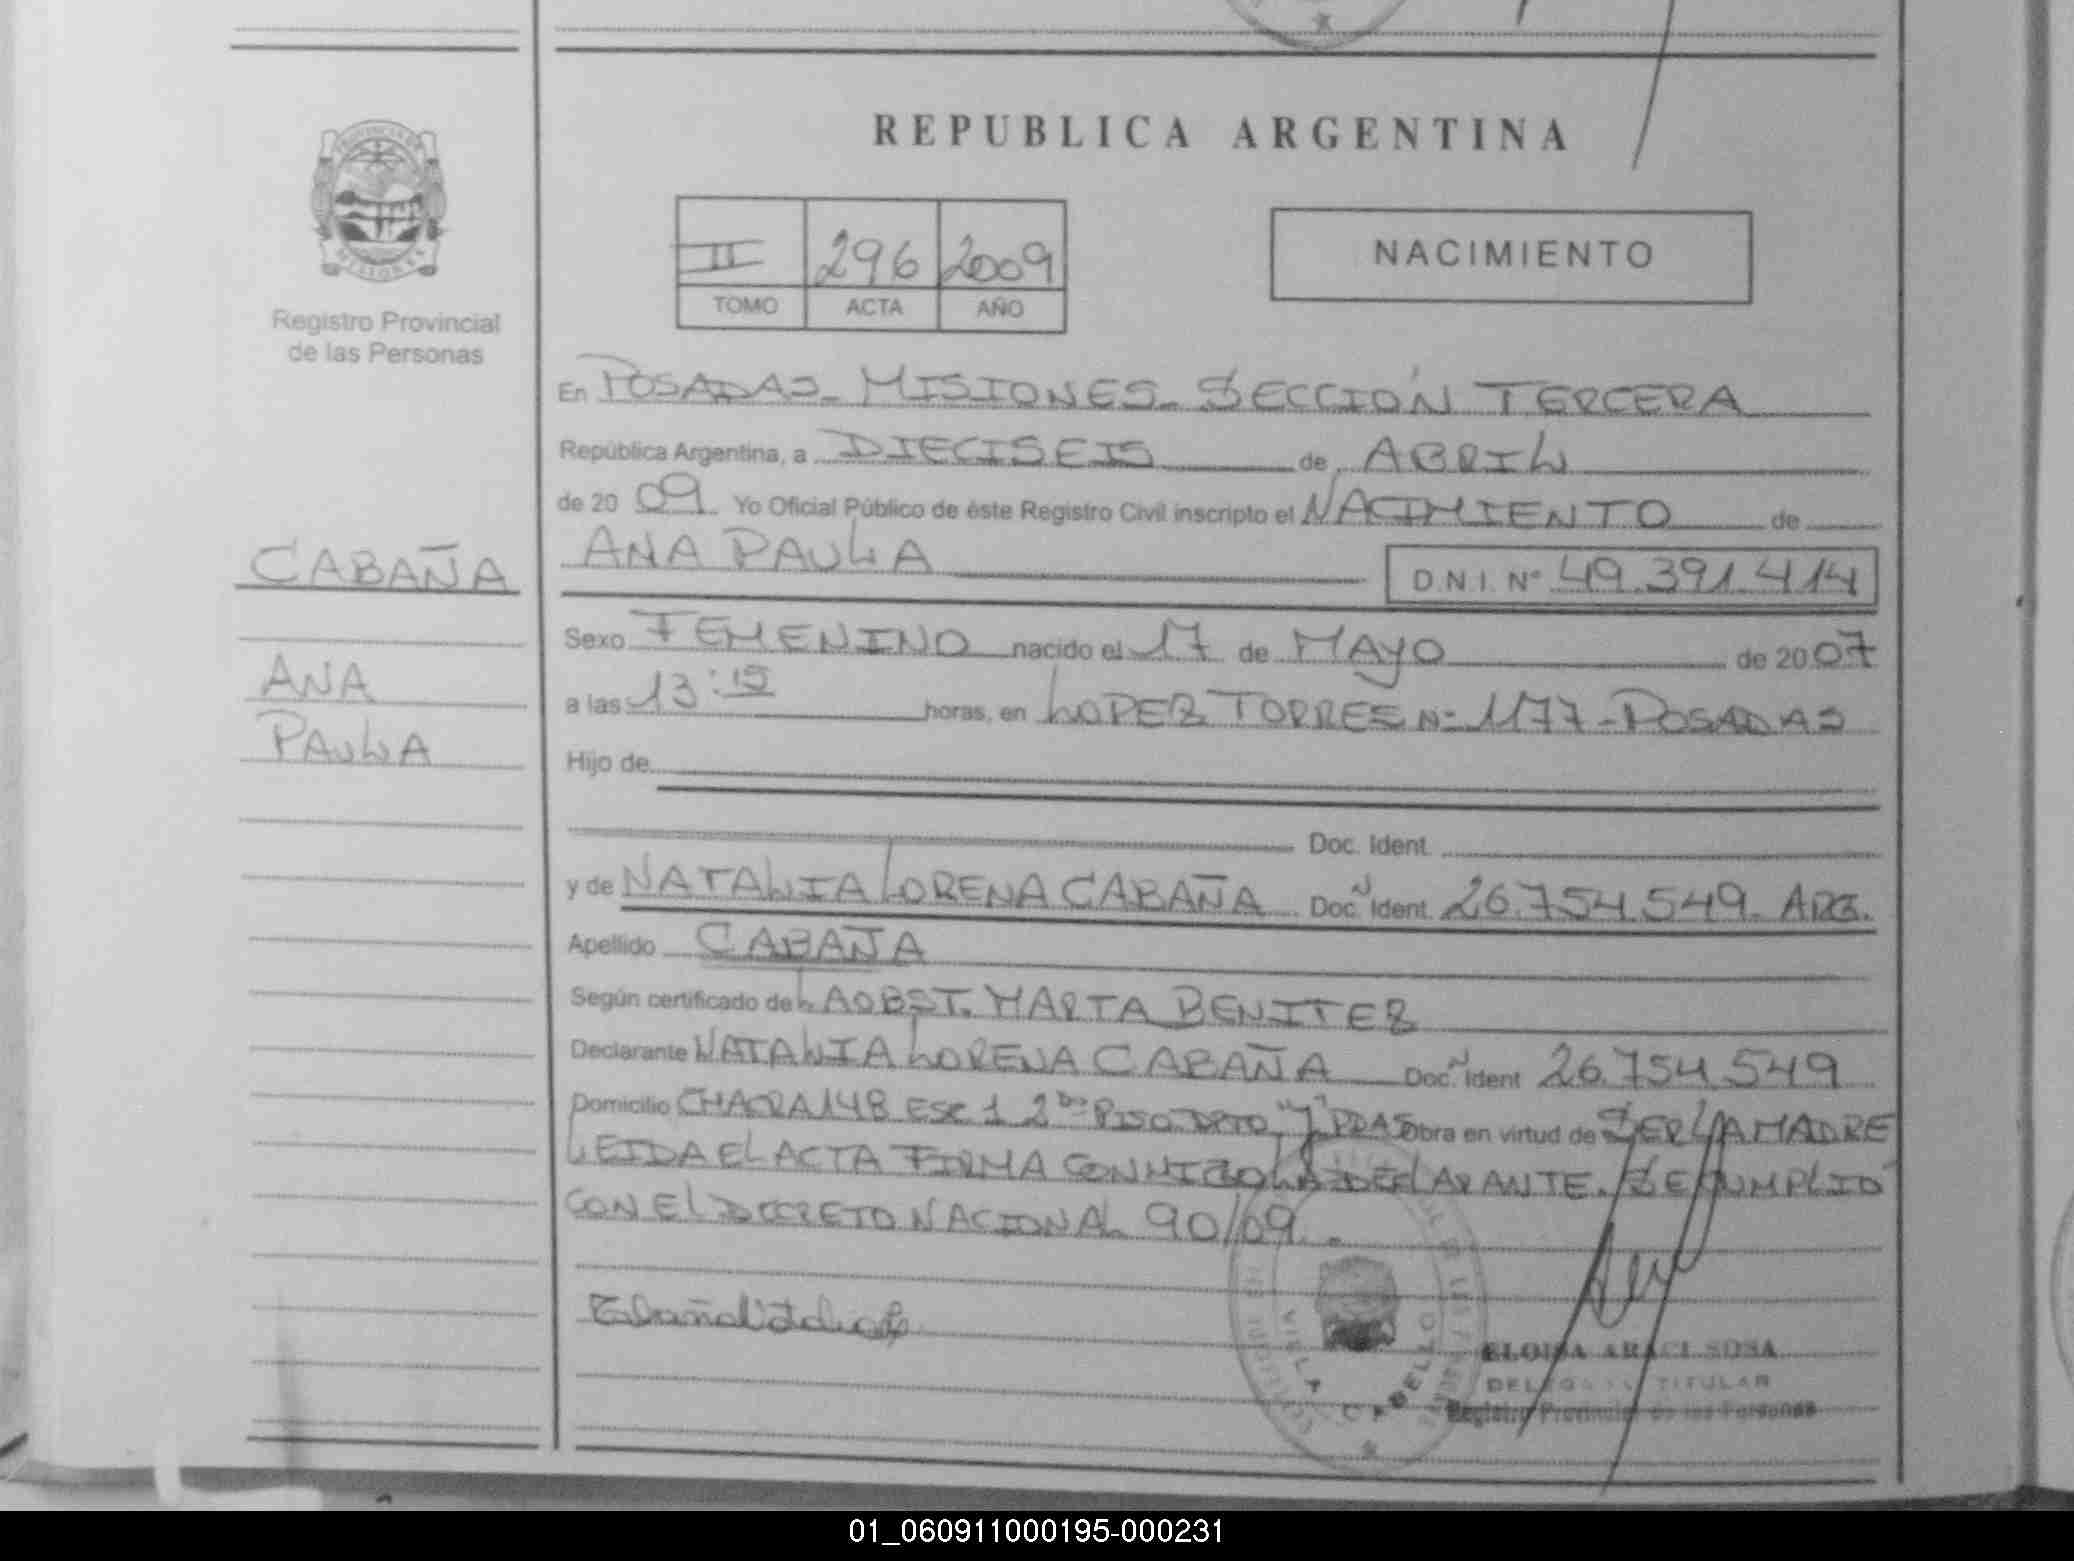 REPUBLICA ARGENTINA
PROVINCIA DE
MISIONES
Registro Provincial
de las Personas
II 296 2009
TOMO ACTA AÑO
NACIMIENTO
En POSADAS - MISIONES - SECCIÓN TERCERA
República Argentina, a DIECISEIS de ABRIL
de 20 09 Yo Oficial Público de éste Registro Civil inscripto el NACIMIENTO de
CABAÑA
ANA PAULA D.N.I. Nº 49.391.414
Sexo FEMENINO nacido el 17 de MAYO de 2007
ANA
a las 13:15 horas, en LOPEZ TORRES Nº 1177 - POSADAS
PAULA
Hijo de
Doc. Ident.
y de NATALIA LORENA CABAÑA Doc. N Ident. 26.754.549. ARG.
Apellido CABAÑA
Según certificado de LA OBST. MARTA BENITEZ
Declarante NATALIA LORENA CABAÑA Doc. N Ident 26.754.549
Domicilio CHACRA 148 ESC 1 2do PISO DPTO "J" PDAS obra en virtud de SER LA MADRE
LEIDA EL ACTA FIRMA CONMIGO LA DECLARANTE. SE CUMPLIO
CON EL DECRETO NACIONAL 90/09.
VILLA CABELLO
ELOISA ARACI SOSA
DELEGADA TITULAR
Registro Provincial de las Personas
01_060911000195-000231